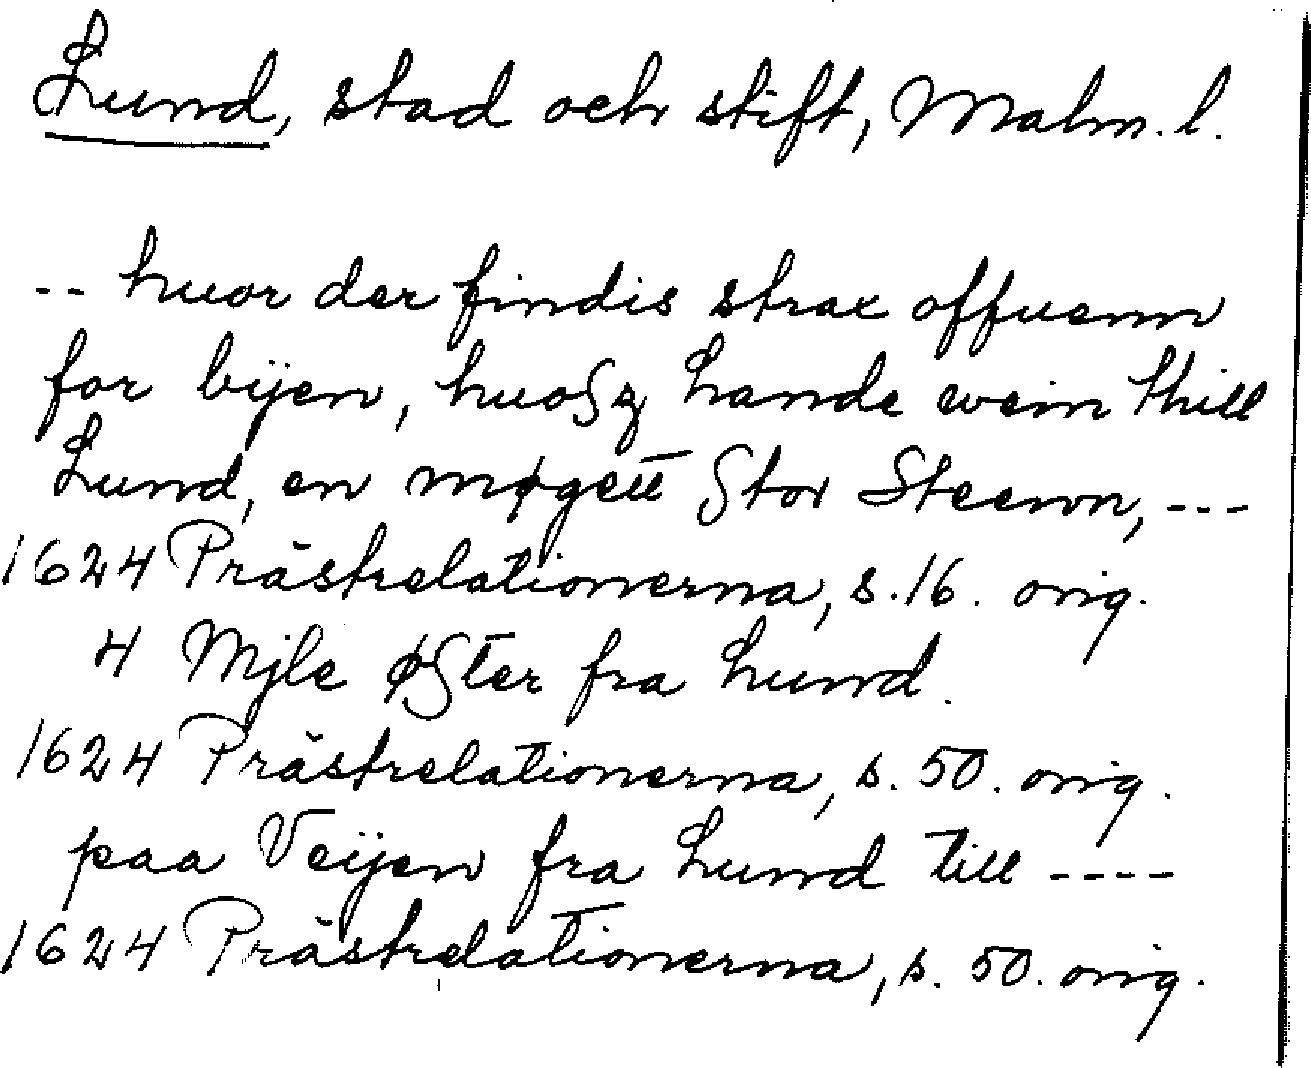 Lund, stad och stift, Malm. l.
-- huor der findis strax offuenn
for bÿen, huosz Lande wein thill
Lund, en møgett stor Steenn, ---
1624 Prästrelationerna, s. 16. orig.
4 Mjle øster fra Lund.
1624 Prästrelationerna, s. 50. orig.
paa Veÿen fra Lund till ----
1624 Prästrelationerna, s. 50. orig.